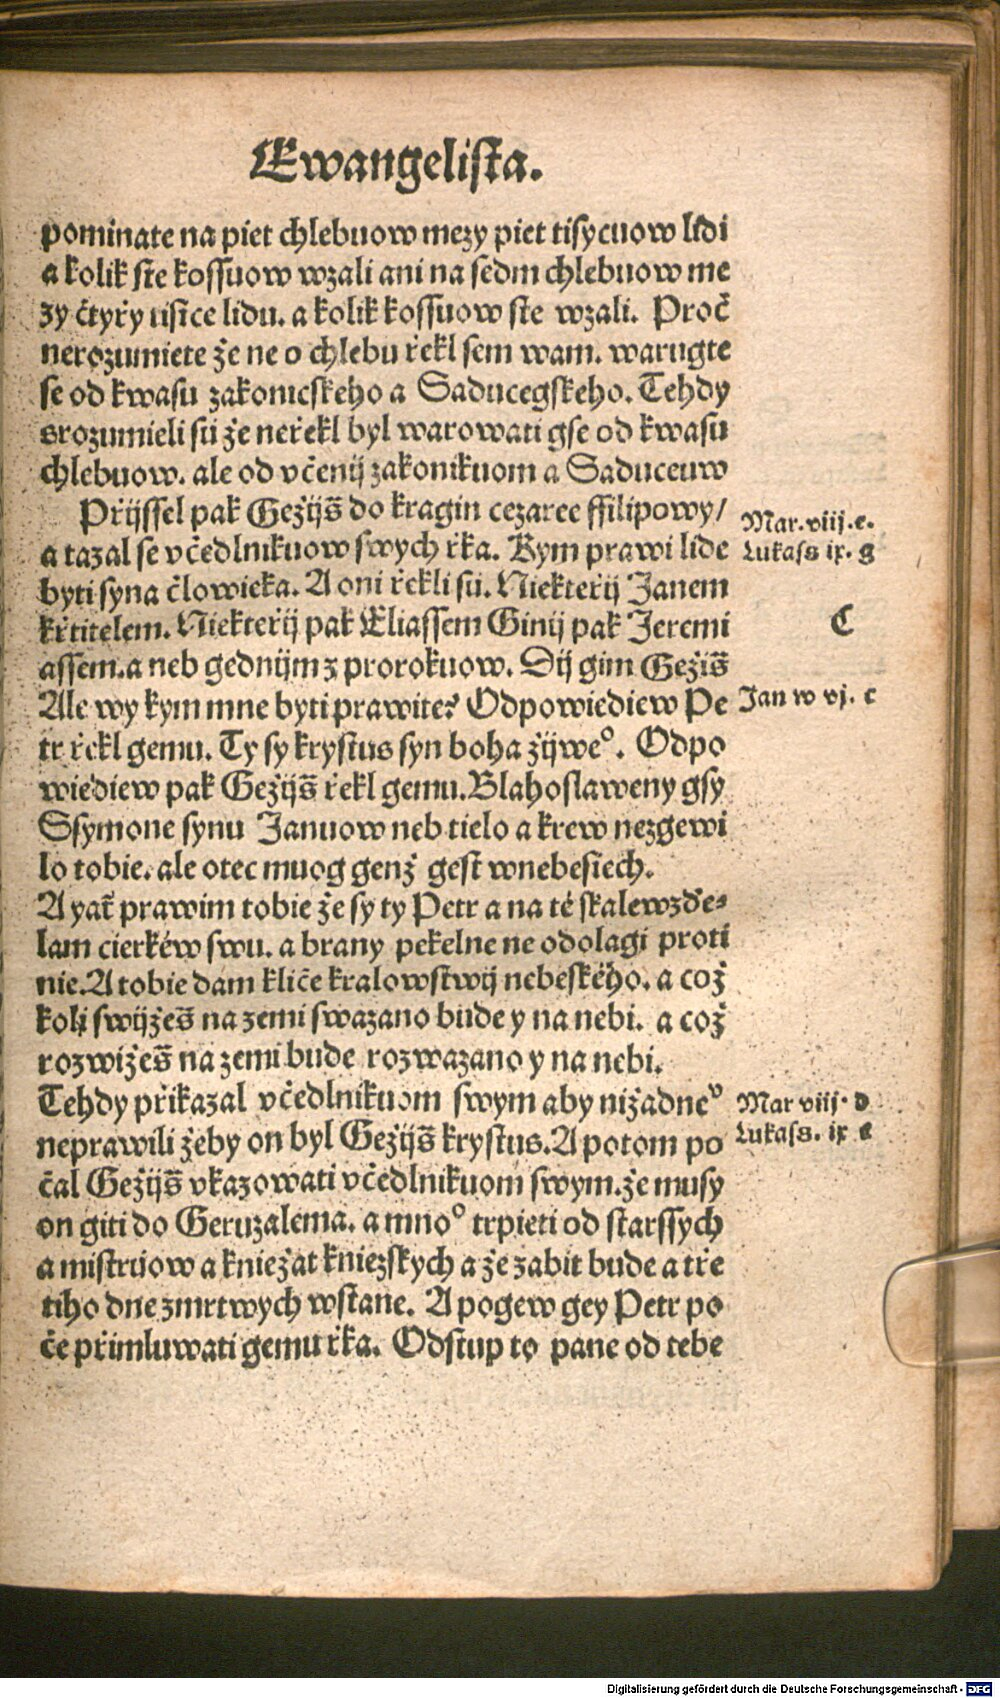 Ewangelista.
pominate na piet chlebuow mezy piet tisycuow lidi
a kolik ste kossuow wzali ani na sedm chlebuow me
zy čtyřy tisice lidu. a kolik kossuow ste wzali. Proč
nerozumiete že ne o chlebu řekl sem wam. warugte
se od kwasu zakonicskeho a Saducegskeho. Tehdy
srozumieli su že neřekl byl warowati gse od kwasu
chlebuow. ale od včenij zakonikuom a Saduceuw
Přijssel pak Gežijs̃ do kragin cezaree ffilipowy/
a tazal se včedlnikuow swych řka. Kym prawi lide
byti syna člowieka. A oni řekli su. Niekteřij Janem
křtitelem. Niekteřij pak Eliassem Ginij pak Jeremi
assem. a neb gednijm z prorokuow. Dij gim Gežis̃
Ale wy kym mne byti prawite? Odpowiediew Pe
tr řekl gemu. Ty sy krystus syn boha žijweº. Odpo
wiediew pak Gežijs̃ řekl gemu. Blahoslaweny gsy
Ssymone synu Januow neb tielo a krew nezgewi
lo tobie. ale otec muog genž gest wnebesiech.
A yat̃ prawim tobie že sy ty Petr a na té skale wzdě⸗
lam cierkéw swu. a brany pekelne ne odolagi proti
nie. A tobie dam kliče kralowstwij nebeského. a což
koli swijžes̃ na zemi swazano bude y na nebi. a což
rozwižes̃ na zemi bude rozwazano y na nebi.
Tehdy přikazal včedlnikuom swym aby nižadneº
neprawili žeby on byl Gežijs̃ krystus. A potom po
čal Gežijs̃ vkazowati včedlnikuom swym. že musy
on giti do Geruzalema. a mnoº trpieti od starssych
a mistruow a kniežat kniezskych a že zabit bude a tře
tiho dne zmrtwych wstane. A pogew gey Petr po
če přimluwati gemu řka. Odstup to pane od tebe
Mar. viij. e.
Lukass ix. g
C
Jan w vj. c
Mar viij. d
Lukass. ix e
Digitalisierung gefördert durch die Deutsche Forschungsgemeinschaft - DFG